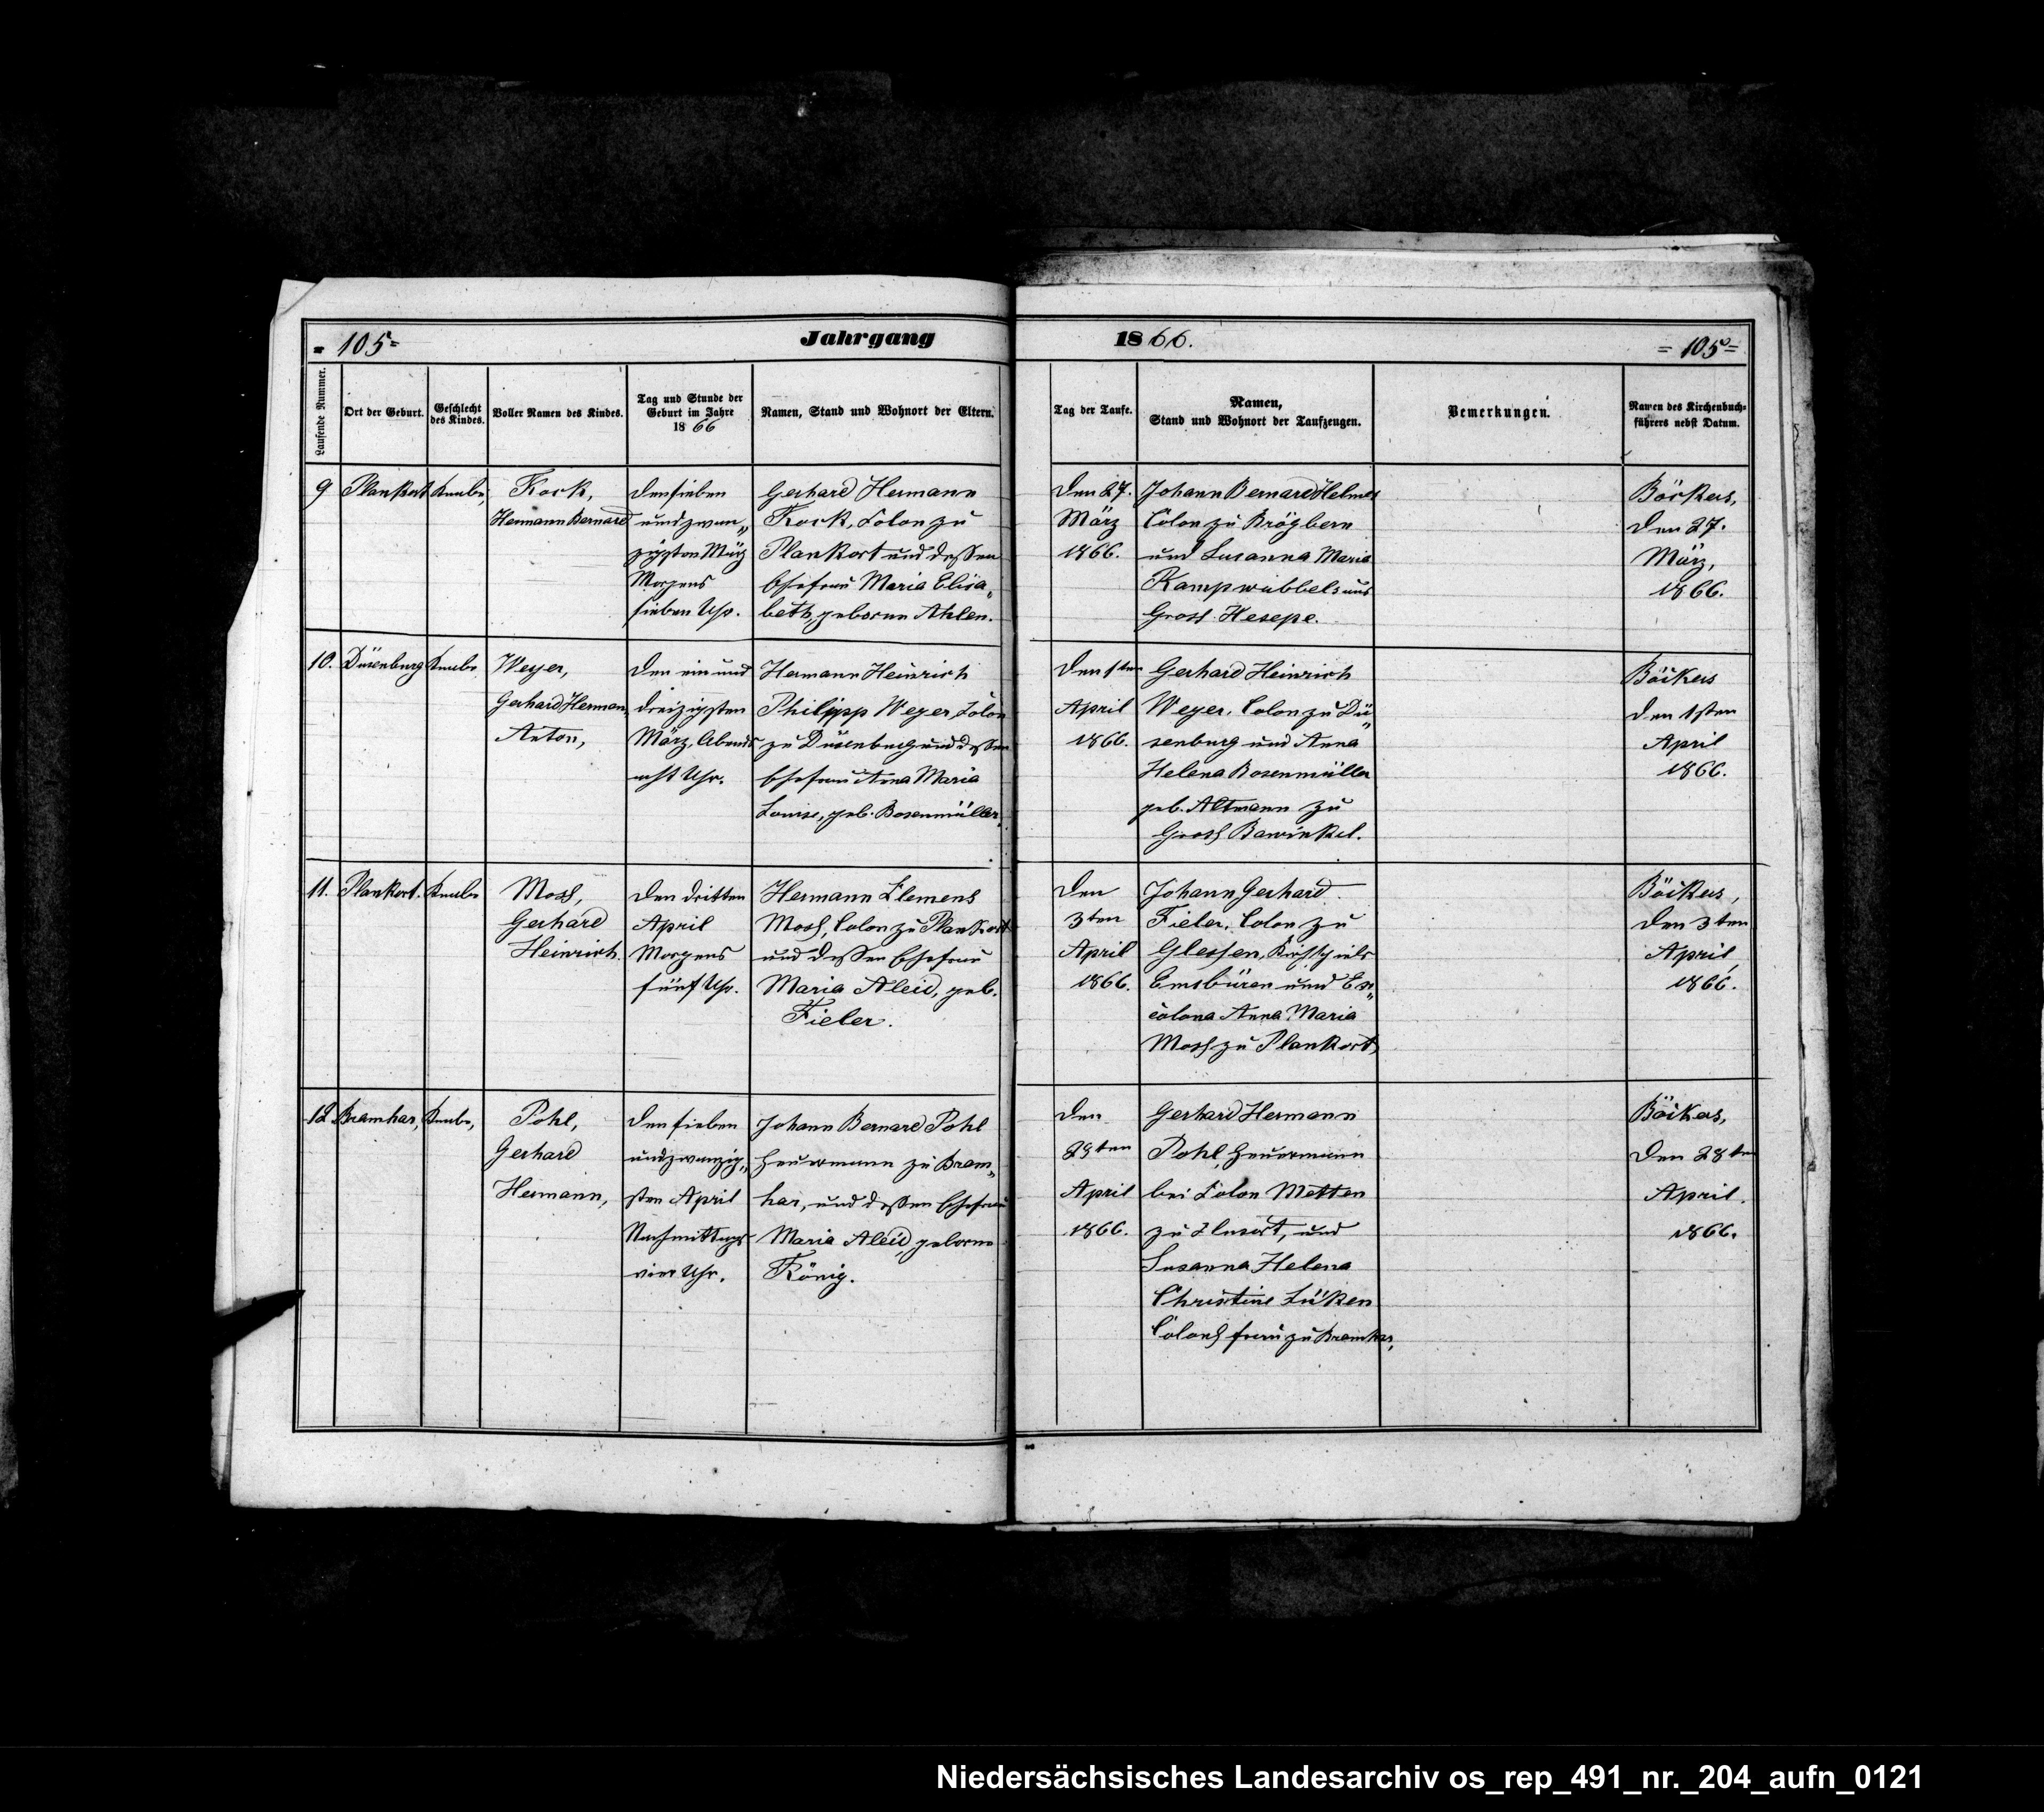 = 105 =
Jahrgang
1866.
= 105 =
Laufende Nummer.
Ort der Geburt.
Geschlecht
des Kindes.
Voller Namen des Kindes.
Tag und Stunde der
Geburt im Jahre
1866
Namen, Stand und Wohnort der Eltern.
Tag der Taufe.
Namen,
Stand und Wohnort der Taufzeugen.
Bemerkungen.
Namen des Kirchenbuch-
führers nebst Datum.
9
Plankort
Knabe,
Kock,
Hermann Bernard
den sieben
und zwan„
zigsten März
Morgens
sieben Uhr.
Gerhard Hermann
Kock, Colon zu
Plankort und dessen
Ehefrau Maria Elisa„
beth, geborne Ahlen.
Den 27.
März
1866.
Johann Bernard Helmes
Colon zu Brögbern
und Susanna Maria
Kampwübbels aus
Gross Hesepe.
Böckers,
den 27.
März,
1866.
10.
Düsenburg
Knabe
Weyer,
Gerhard Herman,
Anton,
den ein und
dreizigsten
März, Abends
acht Uhr.
Hermann Heinrich
Philipp Weyer, Colon
zu Düsenburg und dessen
Ehefrau Anna Maria
Louise, geb. Bosenmüller.
Den 1ten
April
1866.
Gerhard Heinrich
Weyer, Colon zu Dü„
senburg und Anna
Helena Bosenmüller
geb. Altmann zu
Gross Bawinkel.
Böckers
den 1sten
April
1866.
11.
Plankort.
Knabe
Moss,
Gerhard
Heinrich.
den dritten
April
Morgens
fünf Uhr.
Hermann Clemens
Moss, Colon zu Plankort
und dessen Ehefrau
Maria Aleid, geb.
Fieler.
Den
3ten
April
1866.
Johann Gerhard
Fieler, Colon zu
Glessen, Kirchspiels
Emsbüren und Ex„
colona Anna Maria
Moss zu Plankort,
Böckers,
den 3ten
April,
1866.
12
Bramhar,
Knabe,
Pohl,
Gerhard
Hermann,
den sieben
und zwanzig„
sten April
Nachmittags
vier Uhr.
Johann Bernard Pohl
Heuermann zu Bram„
har, und dessen Ehefrau
Maria Aleid, geborne
König.
Den
29ten
April
1866.
Gerhard Hermann
Pohl, Heuermann
bei Colon Metten
zu Clusort, und
Susanna Helena
Christine Lüken
Colons frau zu Bramhar,
Böckers,
den 28ten
April.
1866.
Niedersächsisches Landesarchiv os_rep_491_nr._204_aufn_0121